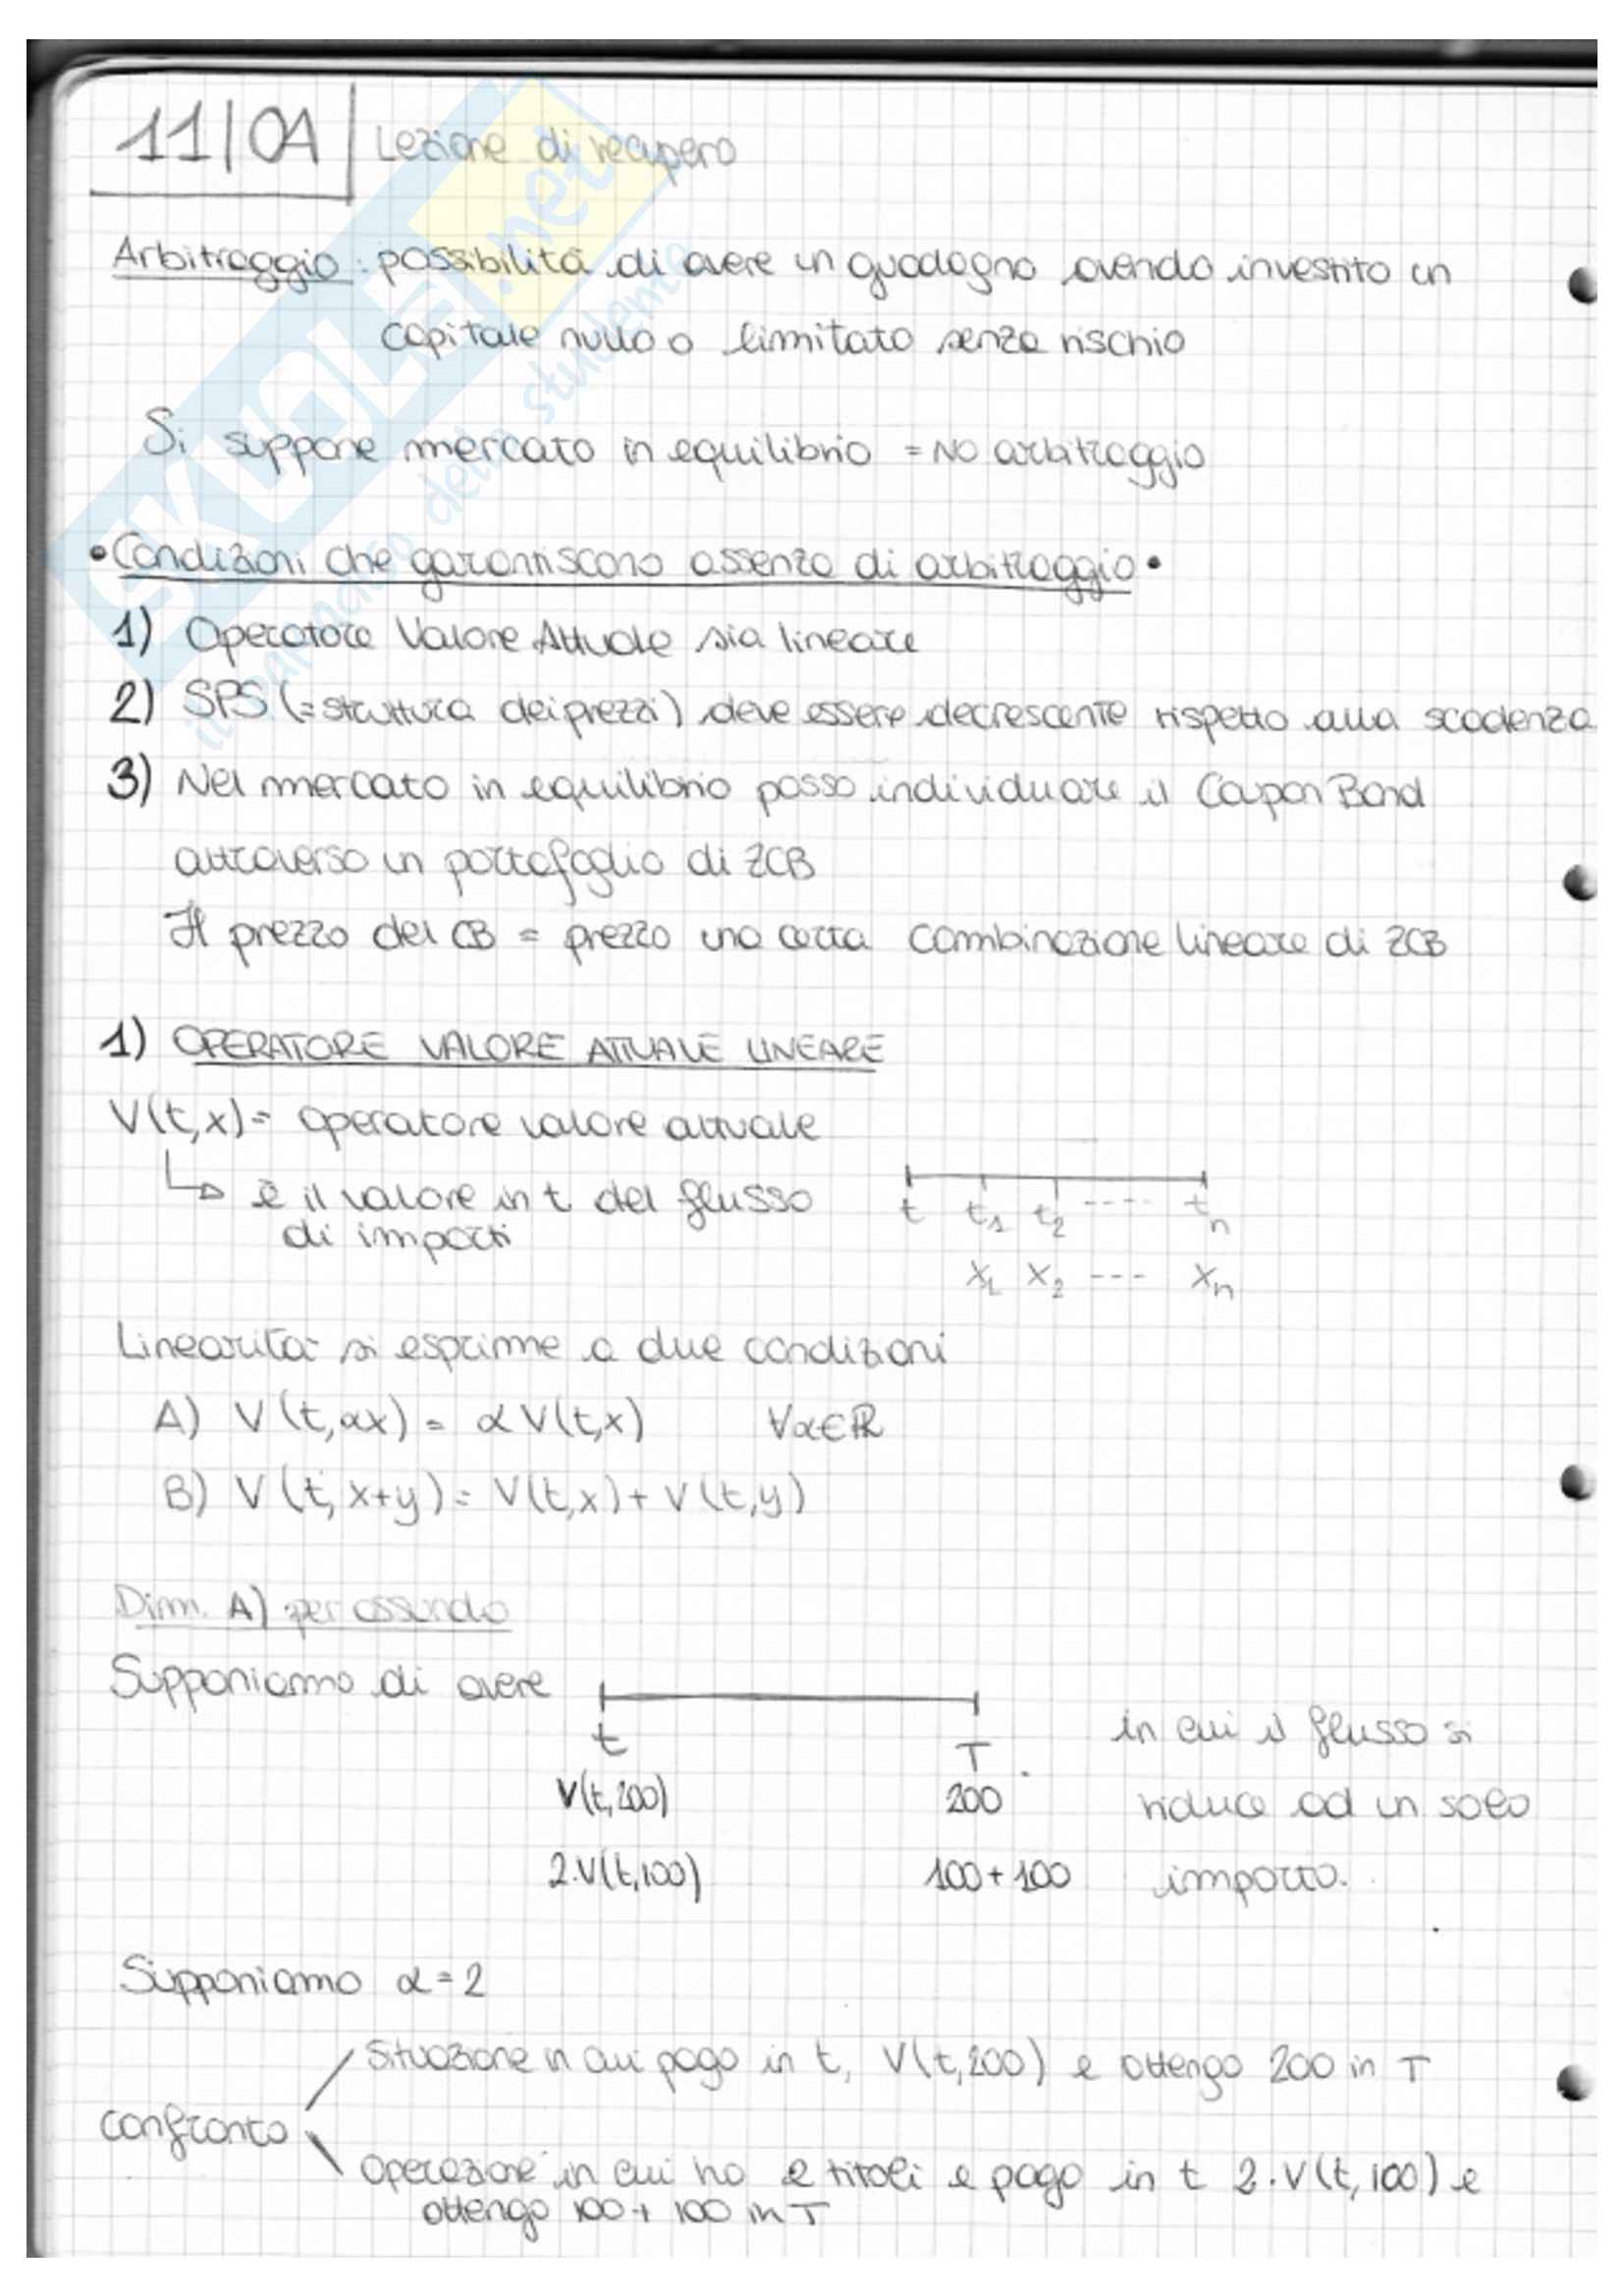 11/04 Lezione di recupero
Arbitraggio: possibilità di avere un guadagno avendo investito un
capitale nullo o limitato senza rischio
Si suppone mercato in equilibrio = NO arbitraggio
• Condizioni che garantiscono assenza di arbitraggio •
1) Operatore Valore Attuale sia lineare
2) SPS (= struttura dei prezzi) deve essere decrescente rispetto alla scadenza
3) Nel mercato in equilibrio posso individuare il Coupon Bond
attraverso un portafoglio di ZCB
Il prezzo del CB = prezzo una certa combinazione lineare di ZCB
1) OPERATORE VALORE ATTUALE LINEARE
V(t,x) = operatore valore attuale
↳ è il valore in t del flusso
di importi
t t₁ t₂ ---- tₙ
x₁ x₂ --- xₙ
Linearità si esprime a due condizioni
A) V(t,αx) = αV(t,x) ∀α∈ℝ
B) V(t,x+y) = V(t,x) + V(t,y)
Dim. A) per assurdo
Supponiamo di avere
t T in cui il flusso si
V(t,200) 200 riduce ad un solo
2·V(t,100) 100+100 importo.
Supponiamo α=2
Situazione in cui pago in t, V(t,200) e ottengo 200 in T
confronto
Operazione in cui ho 2 titoli e pago in t 2·V(t,100) e
ottengo 100+100 in T
SKUOLA.net
il paradiso dello studente